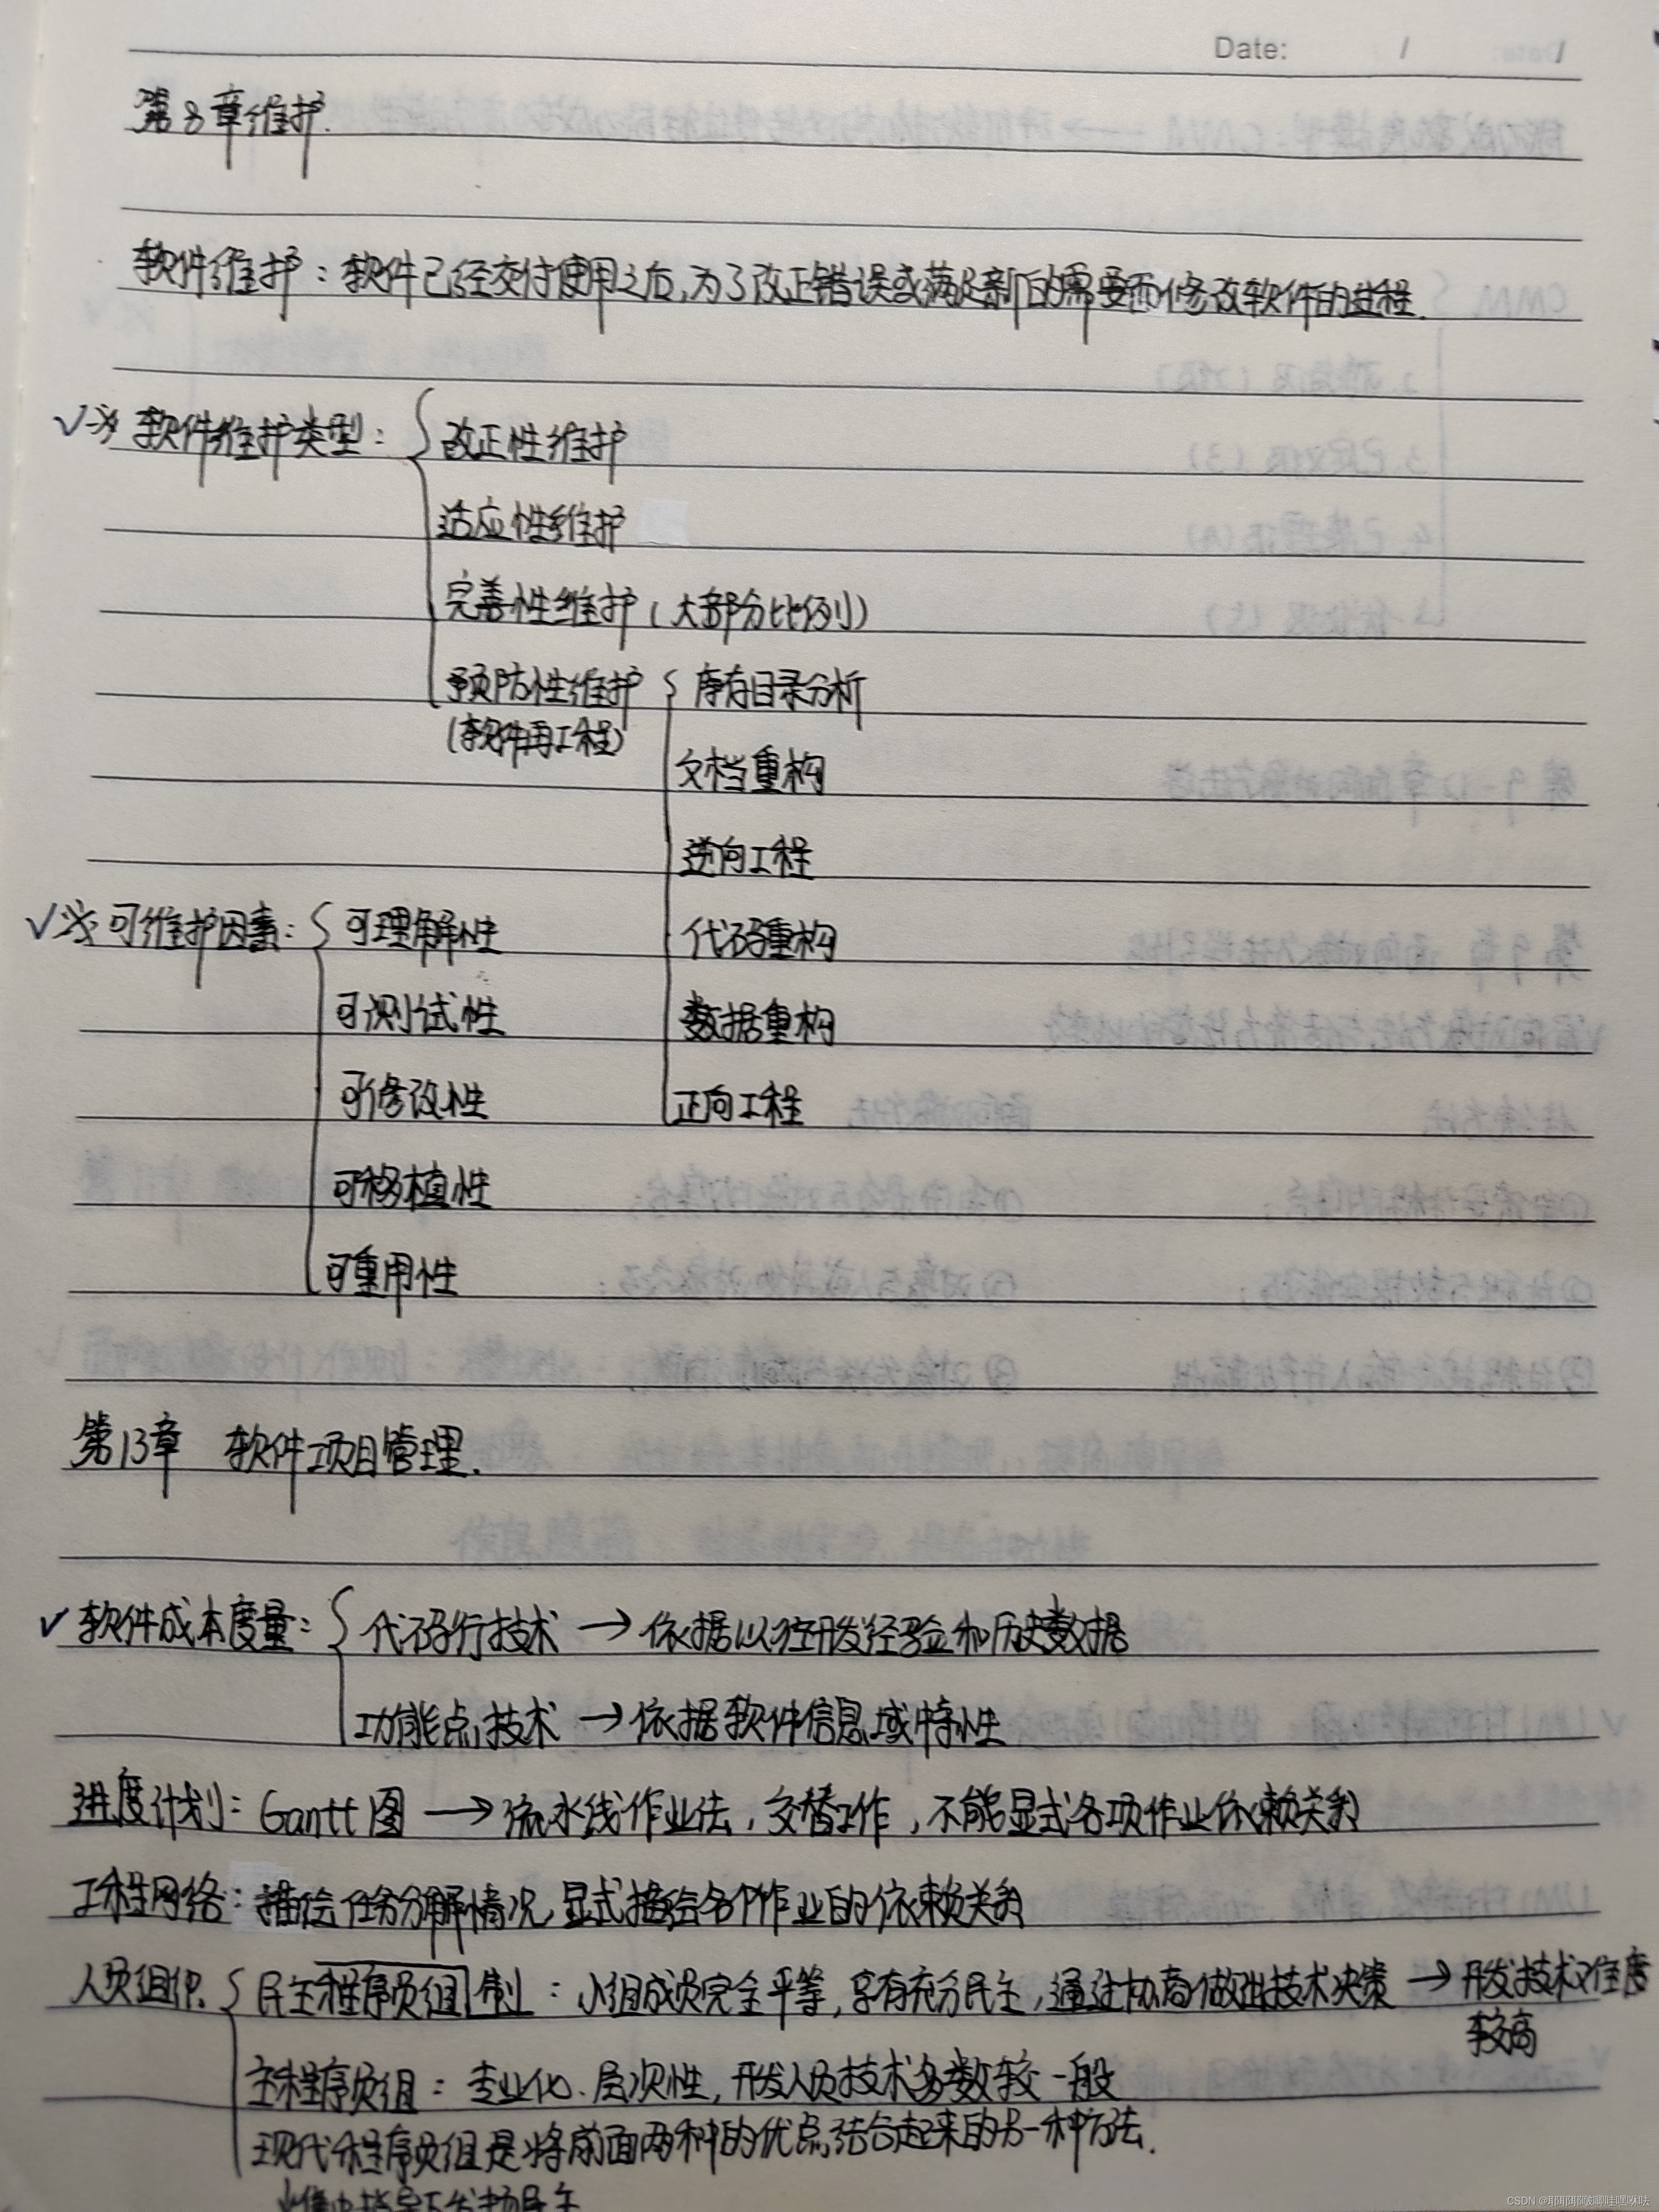 Date: / /
第8章维护.
软件维护：软件已经交付使用之后,为了改正错误或满足新的需要而修改软件的过程.
✓※ 软件维护类型： 改正性维护
适应性维护
完善性维护（大部分比例）
预防性维护 库存目录分析
（软件再工程）
文档重构
逆向工程
✓※ 可维护因素： 可理解性 代码重构
可测试性 数据重构
可修改性 正向工程
可移植性
可重用性
第13章 软件项目管理.
✓ 软件成本度量： 代码行技术 → 依据以往开发经验和历史数据
功能点技术 → 依据软件信息域特性
进度计划：Gantt图 → 流水线作业法，交替工作，不能显式各项作业依赖关系
工程网络：描绘任务分解情况,显式描绘各个作业的依赖关系
人员组织. 民主程序员组制：小组成员完全平等,享有充分民主,通过协商做出技术决策 → 开发技术难度
较高
主程序员组：专业化、层次性,开发人员技术多数较一般
现代程序员组是将前面两种的优点结合起来的另一种方法.
CSDN